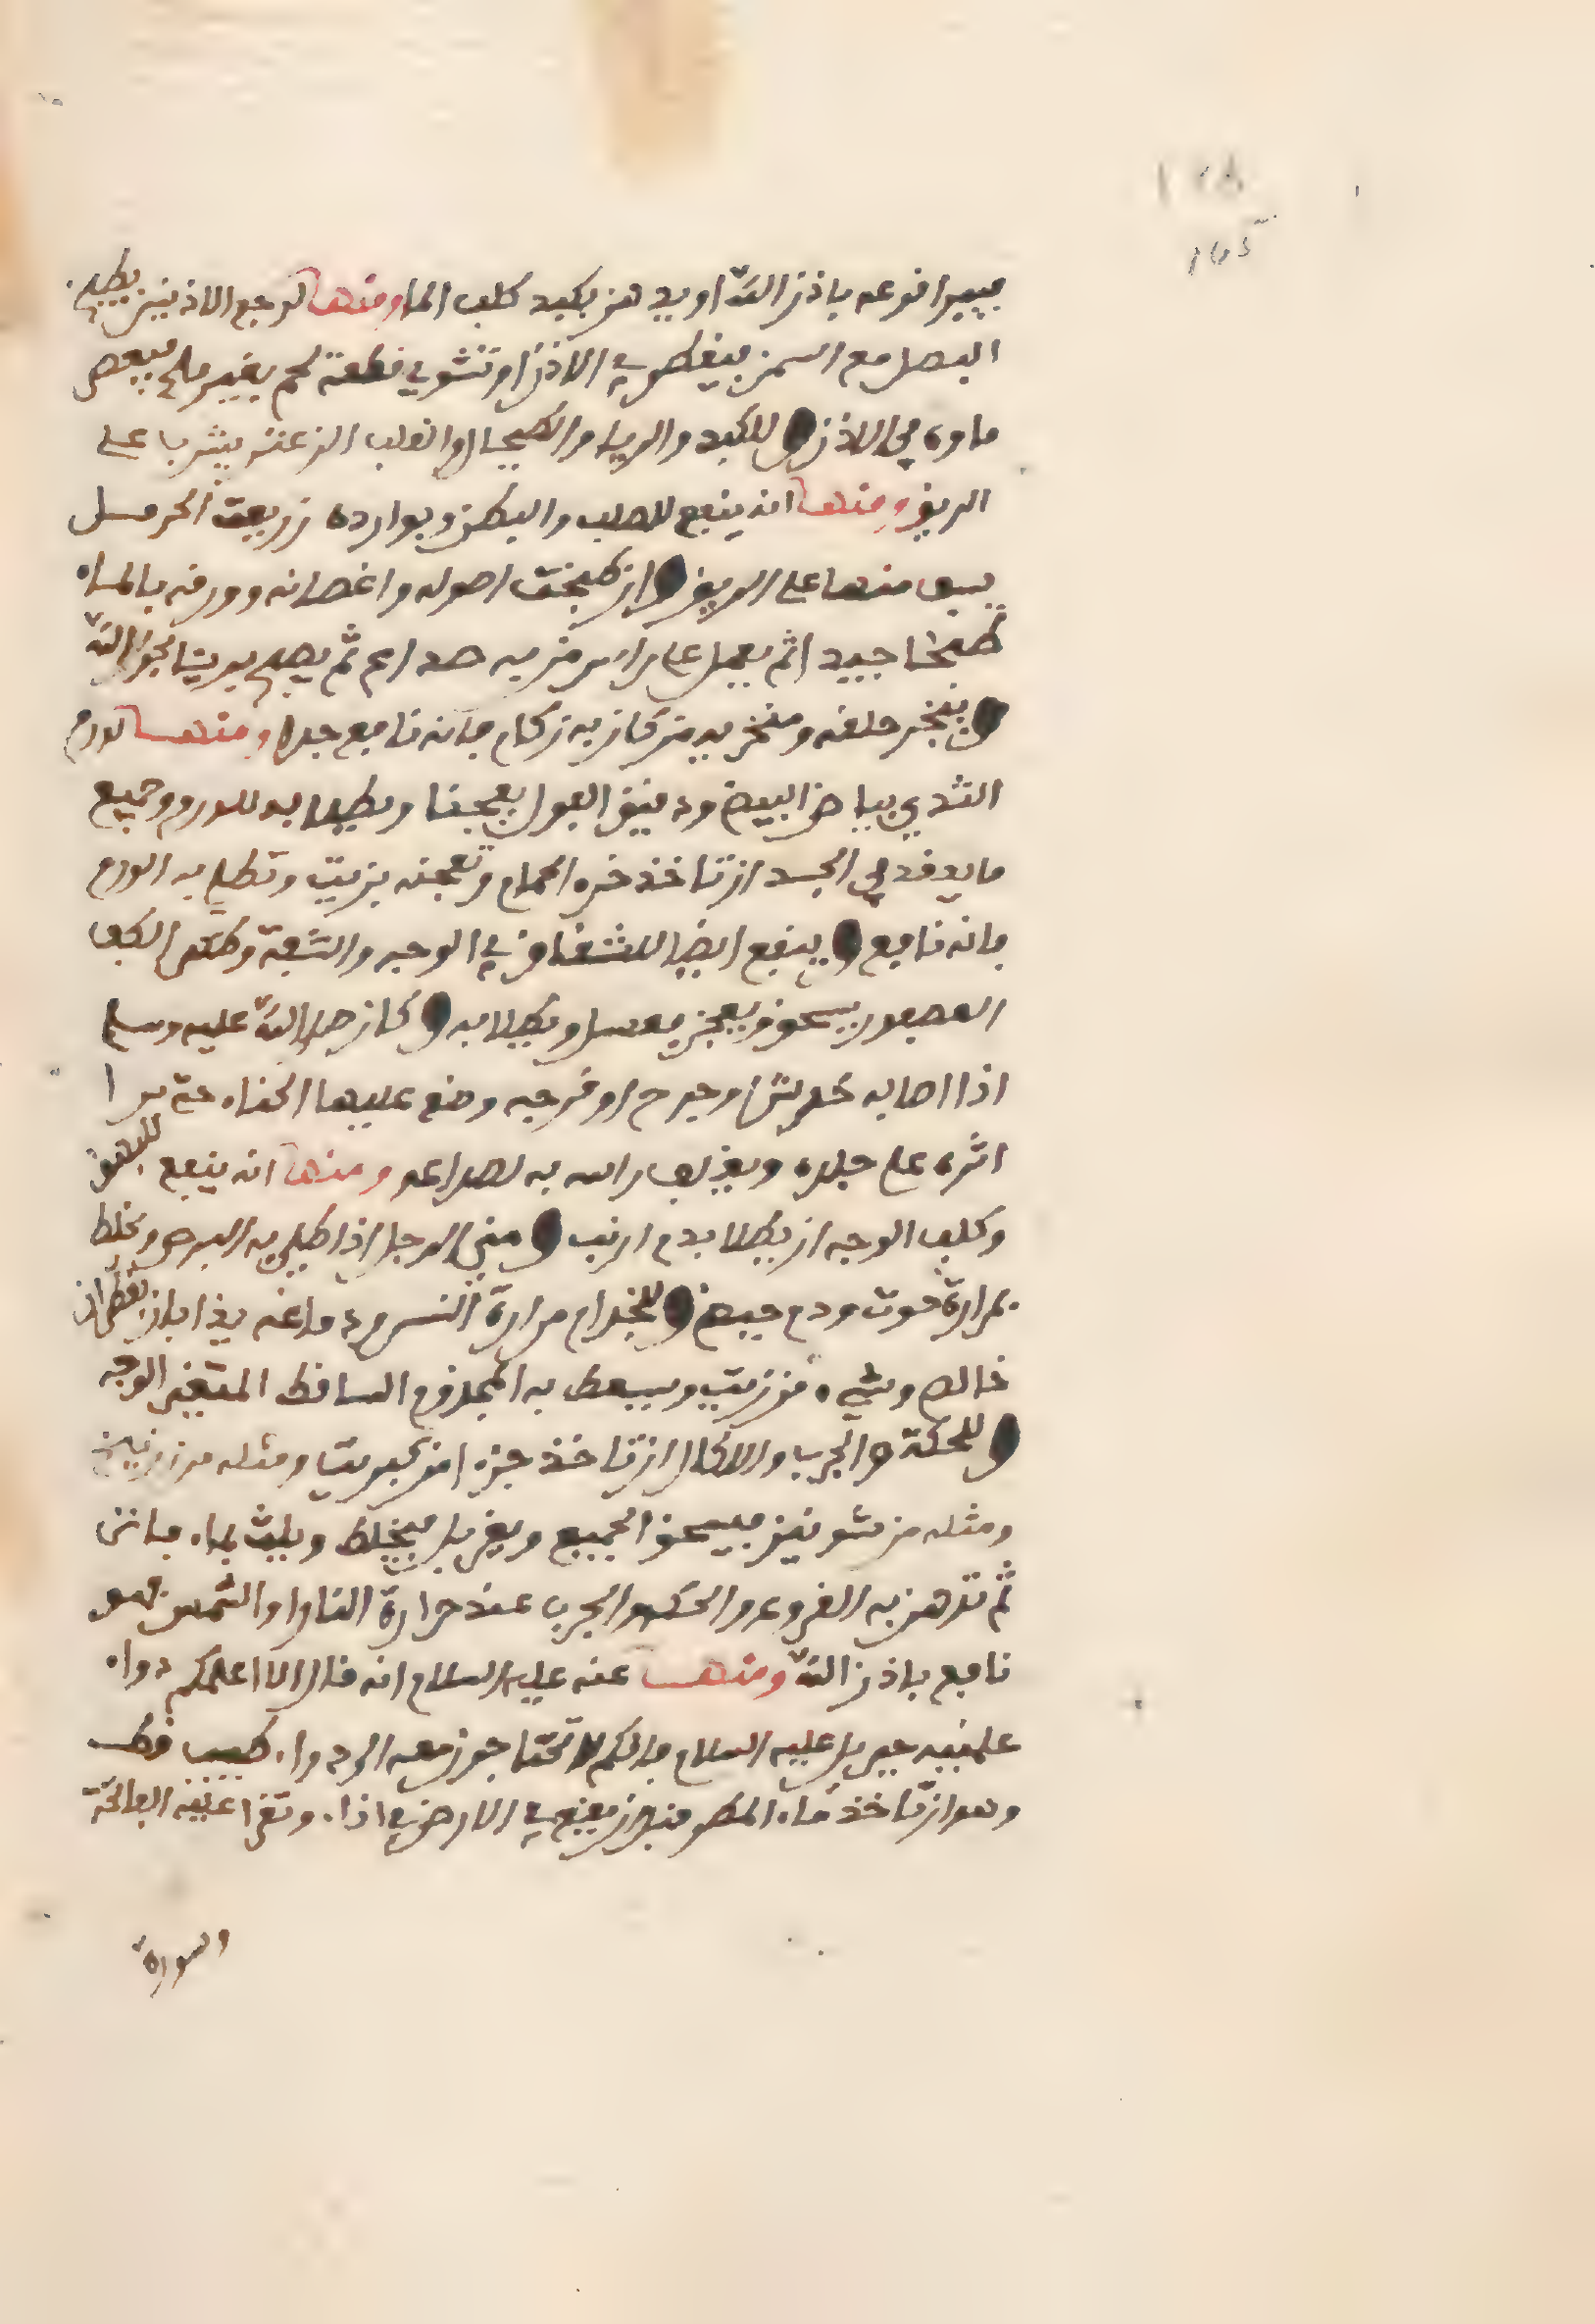 165
فيبرا فزعه باذن الله او يدهن بكبد كلب الما ومنها لوجع الاذنين يطبخ
البصل مع السمن فيقطر في الاذن او تشوي قطعة لحم بغير ملح فيعصر
ماوه في الاذن وللكبد والريه والطيحال والقلب الزعتر يشربا على
الريق ومنها انه ينفع للصلب والبطن وبوارده زريعة الحرمل
يسف منها على الريق وان طبخت اصوله واغصانه وورقه بالماء
طبخا جيدا ثم يعمل على راس من به صداع ثم يصح يبريا بحول الله
ويبخر حلقه ومنخريه من كان به زكام فانه نافع جدا ومنها لورم
الثدي بياض البيض ودقيق الفول يعجنا ويطلا به للورم وجميع
ما يدفد في الجسد ان تاخذ خره الحمام وتعجنه بزيت وتطلي به الورم
فانه نافع وينفع ايضا للشقاق في الوجه والشفة وكلف الكف
العصفور يسحق ويعجن بعسل ويطلا به وكان صلى الله عليه وسلم
اذا اصابه خدش او جرح او قرحه وضع عليها الحناء حتى يرا
اثره على جلده ويغلف راسه به لصداعه ومنها انه ينفع للبهق
وكلف الوجه ان يطلا بدم ارنب ومني الرجل اذا طلي به البرص ويخلط
بمرارة حوت ودم حيض وللجذام مرارة النسر ودماغه يذابان بقطران
خالص وشيء من زيت ويسعط به المجذوم الساقط المتغير الوجه
وللحكة والجرب والاكال ان تاخذ جزءا من كبريت ومثله من زرنيخ
ومثله من شونيز فيسحق الجميع ويغربل فيخلط ويلث بماء فاتر
ثم تدهن به القروح والحكه والجرب عند حرارة النار او الشمس فهو
نافع باذن الله ومنها عنه عليه السلام انه قال الا اعلمكم دواء
علمنيه جبريل عليه السلام فانكم لا تحتاجون معه الى دواء طبيب قط
وهو ان تاخذ ماء المطر قبل ان يقع في الارض في اناء وتقرا عليه الفاتحة
وسورة